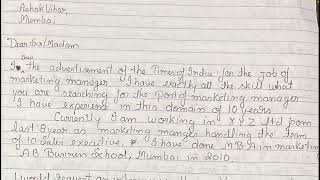 Ashok Vihar,
Mumbai
Dear Sir/Madam
I saw the advertisement of the Times of India for the job of
marketing manager. I have exactly all the skill what
you are searching for the post of marketing manager
I have experience in this domain of 10 years
Currently I am working in XYZ ltd from
last 8 year as marketing manager handling the team
of 10 Sales executive. I have done MBA in marketing
AB Business School, Mumbai in 2010.
I would request an